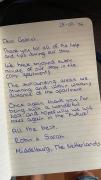 28-05-24
Dear Gabriel,
Thank you for all of the help
and tips during our stay.
We have enjoyed every
minute of our stay in the
cosy apartment.
The surrounding areas are
stunning and within walking
distance of the apartment.
Once again, thank you for
being such a wonderful
host and hopefully we
meet again in the future!
All the best,
Robin & Sarah
Middelburg, The Netherlands